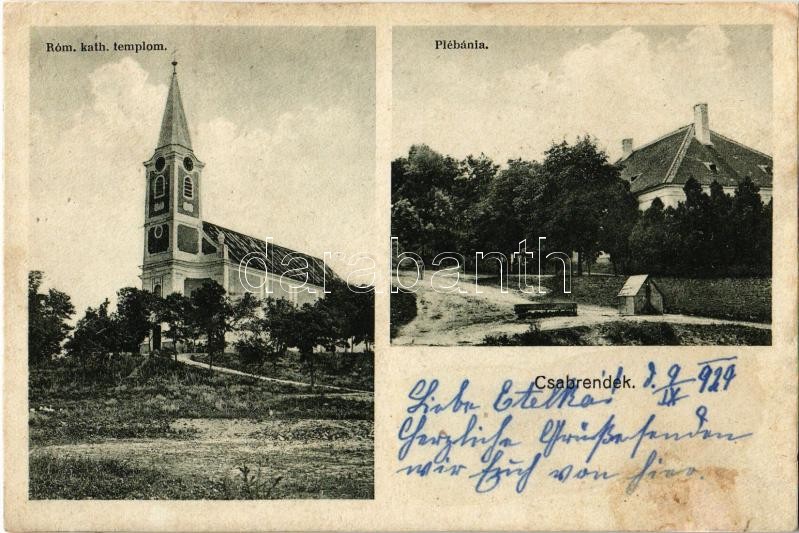 Róm. kath. templom.
Plébánia.
darabanth
Csabrendek.
Liebe Etelka!
Herzliche Grüße senden
wir Euch von hier.